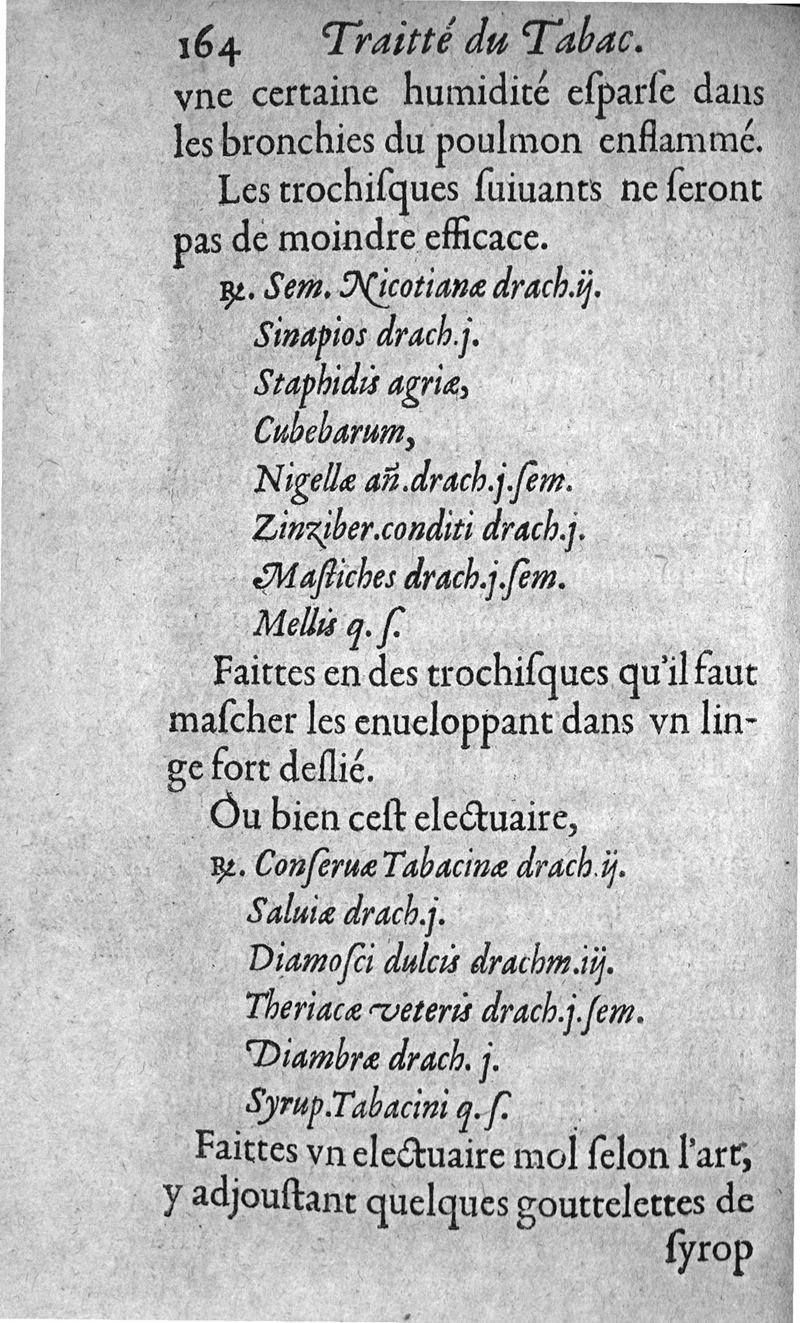 164 Traitté du Tabac.
vne certaine humidité eſparſe dans
les bronchies du poulmon enflammé.
Les trochiſques ſuiuants ne ſeront
pas de moindre efficace.
℞. Sem. Nicotianæ drach.ij.
Sinapios drach.j.
Staphidis agriæ,
Cubebarum,
Nigellæ añ.drach.j.ſem.
Zinziber.conditi drach.j.
Maſtiches drach.j.ſem.
Mellis q. ſ.
Faittes en des trochiſques qu'il faut
maſcher les enueloppant dans vn lin-
ge fort deſlié.
Ou bien ceſt electuaire,
℞. Conſeruæ Tabacinæ drach.ij.
Saluiæ drach.j.
Diamoſci dulcis drachm.iij.
Theriacæ veteris drach.j.ſem.
Diambræ drach. j.
Syrup.Tabacini q. ſ.
Faittes vn electuaire mol ſelon l'art,
y adjouſtant quelques gouttelettes de
ſyrop